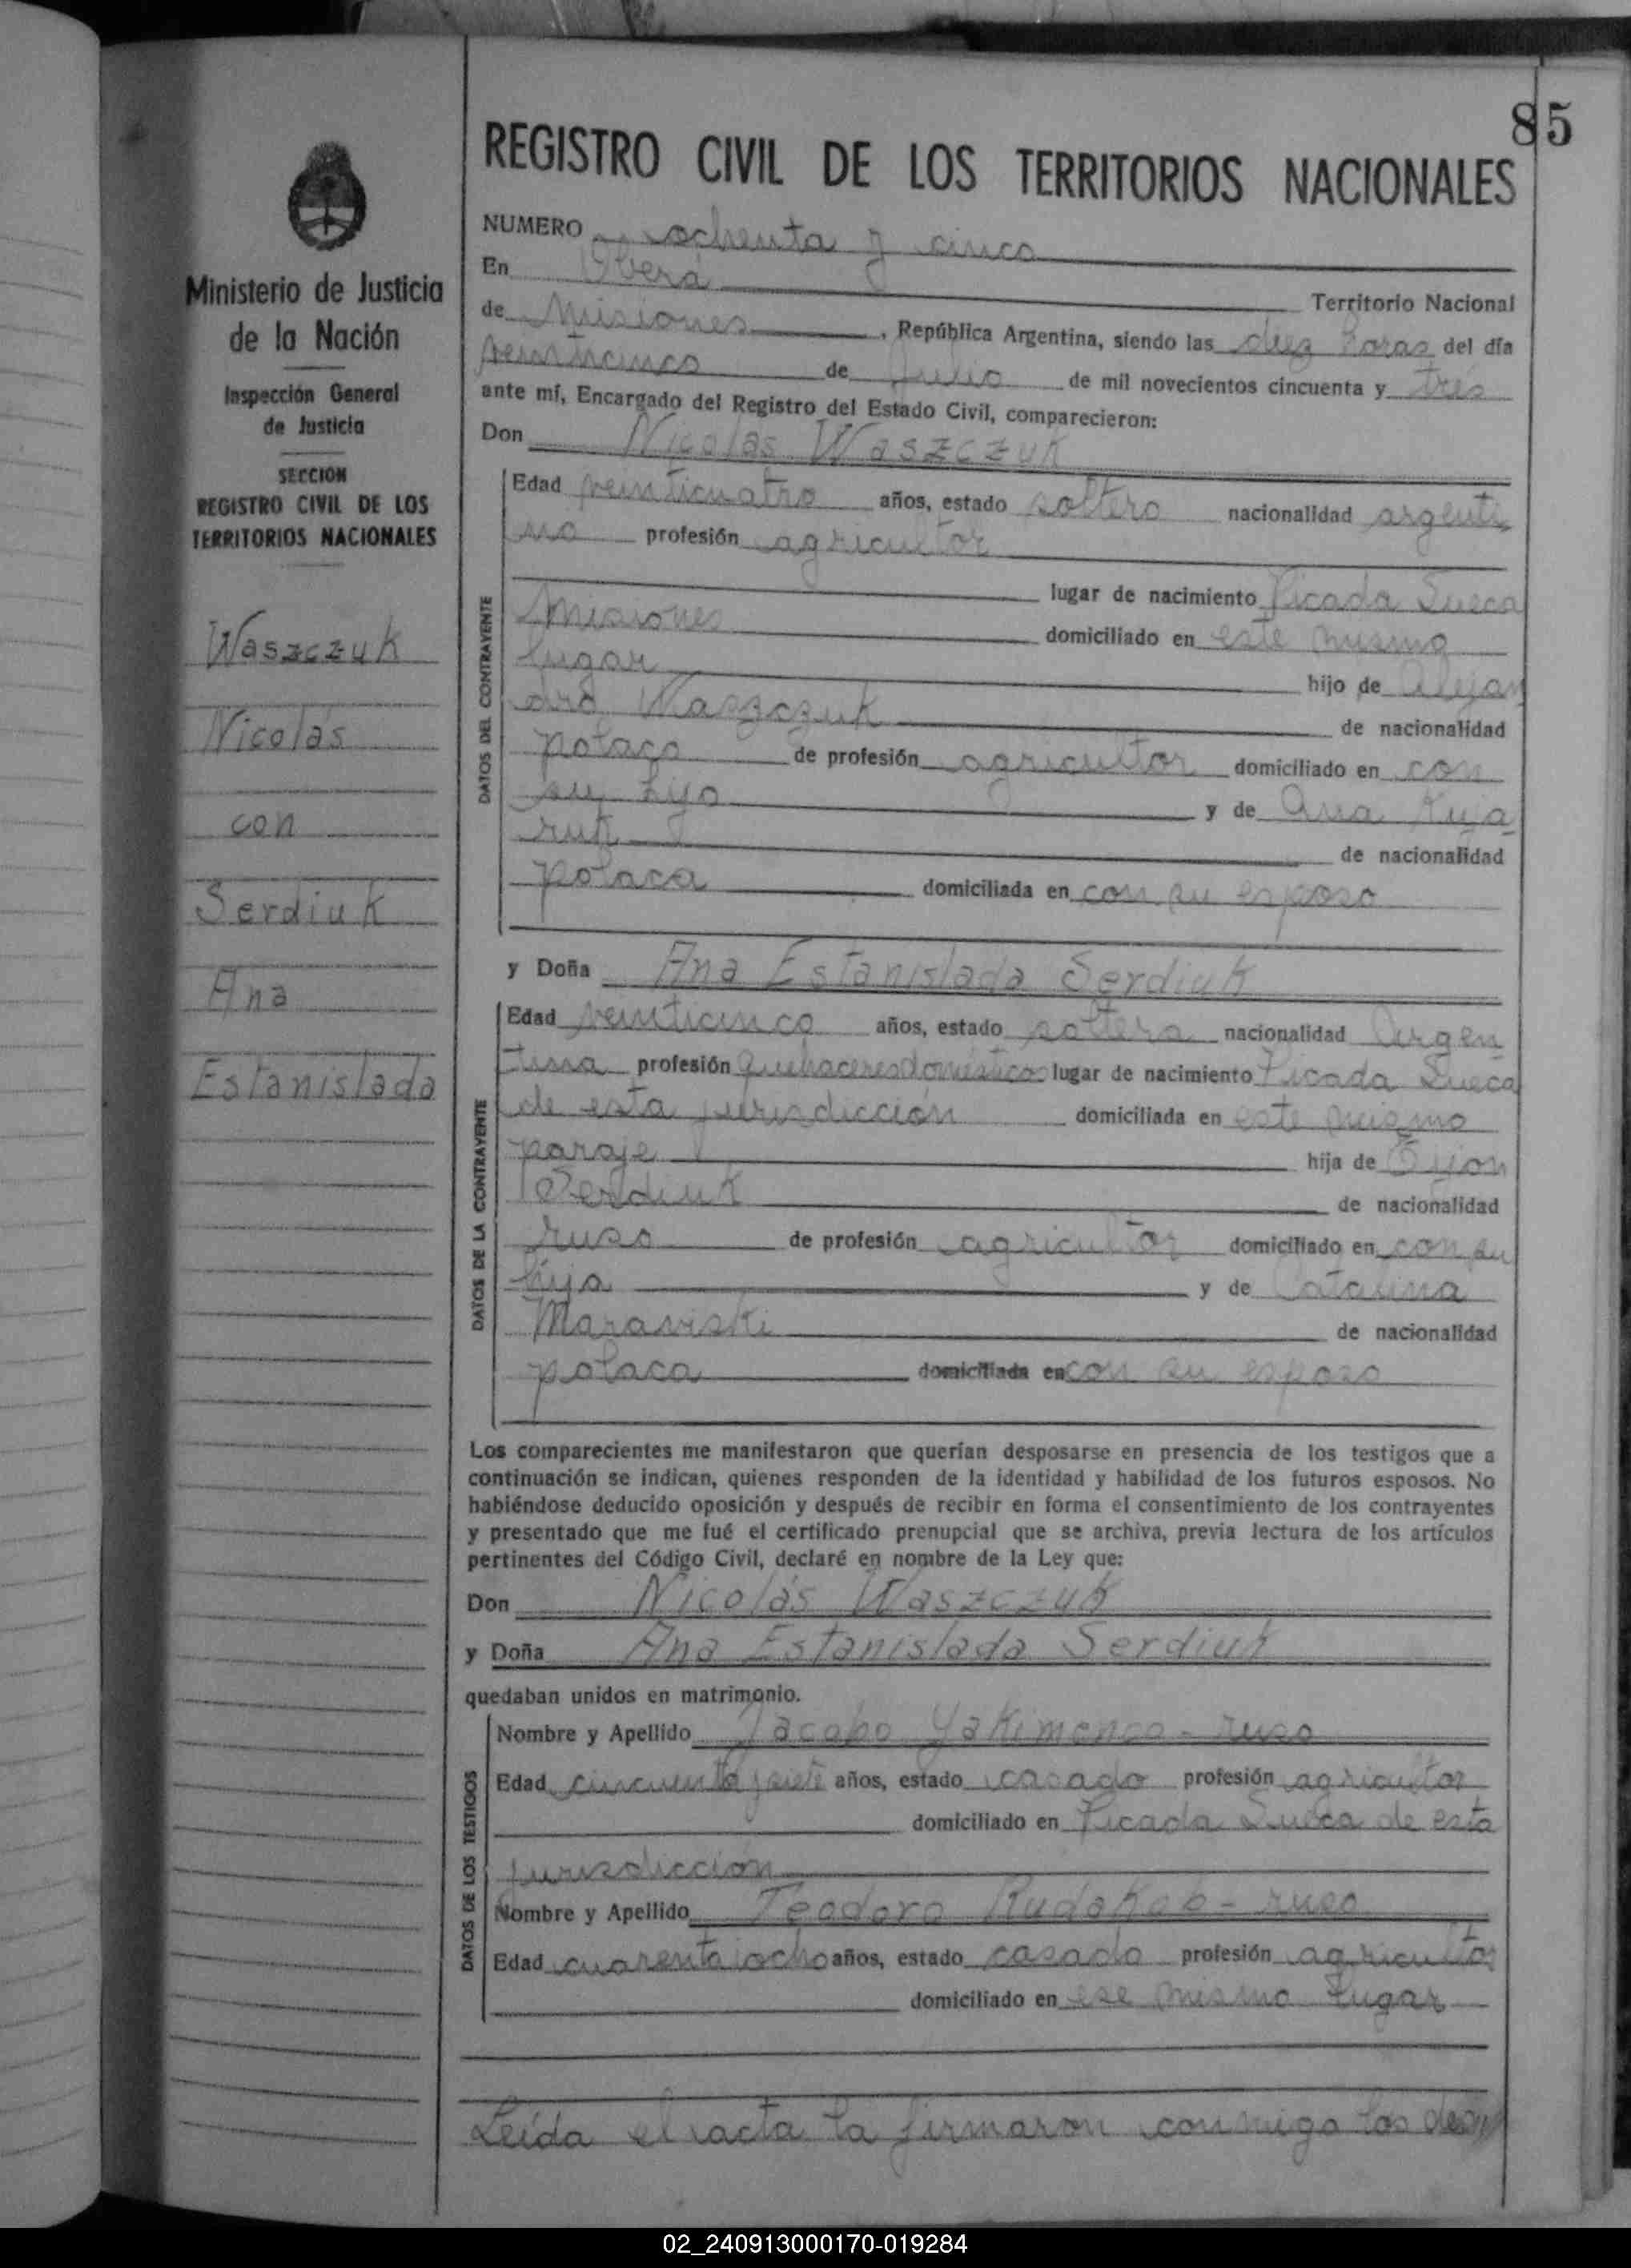 85
REGISTRO CIVIL DE LOS TERRITORIOS NACIONALES
Ministerio de Justicia
de la Nación
Inspección General
de Justicia
SECCION
REGISTRO CIVIL DE LOS
TERRITORIOS NACIONALES
Waszczuk
Nicolás
con
Serdiuk
Ana
Estanislada
NUMERO ochenta y cinco
En Oberá Territorio Nacional
de Misiones, República Argentina, siendo las diez horas del día
veinticinco de Julio de mil novecientos cincuenta y tres
ante mí, Encargado del Registro del Estado Civil, comparecieron:
Don Nicolás Waszczuk
DATOS DEL CONTRAYENTE
Edad veinticuatro años, estado soltero nacionalidad argenti
no profesión agricultor
lugar de nacimiento Picada Sueca
Misiones domiciliado en este mismo
lugar hijo de Alejan
dro Waszczuk de nacionalidad
polaco de profesión agricultor domiciliado en con
su hijo y de Ana Kuja
ruk de nacionalidad
polaca domiciliada en con su esposo
y Doña Ana Estanislada Serdiuk
DATOS DE LA CONTRAYENTE
Edad veinticinco años, estado soltera nacionalidad Argen
tina profesión Quehaceres domésticos lugar de nacimiento Picada Sueca
de esta jurisdicción domiciliada en este mismo
paraje hija de
Serdiuk de nacionalidad
ruso de profesión agricultor domiciliado en con su
hija y de Catalina
Maraviski de nacionalidad
polaca domiciliada en con su esposo
Los comparecientes me manifestaron que querían desposarse en presencia de los testigos que a
continuación se indican, quienes responden de la identidad y habilidad de los futuros esposos. No
habiéndose deducido oposición y después de recibir en forma el consentimiento de los contrayentes
y presentado que me fué el certificado prenupcial que se archiva, previa lectura de los artículos
pertinentes del Código Civil, declaré en nombre de la Ley que:
Don Nicolás Waszczuk
y Doña Ana Estanislada Serdiuk
quedaban unidos en matrimonio.
DATOS DE LOS TESTIGOS
Nombre y Apellido Jacobo Yakimenco - ruso
Edad cincuenta y siete años, estado casado profesión agricultor
domiciliado en Picada Sueca de esta
jurisdicción
Nombre y Apellido Teodoro Rudakob - ruso
Edad cuarenta iocho años, estado casado profesión agricultor
domiciliado en ese mismo lugar
Leída el acta la firmaron conmigo los
02_240913000170-019284